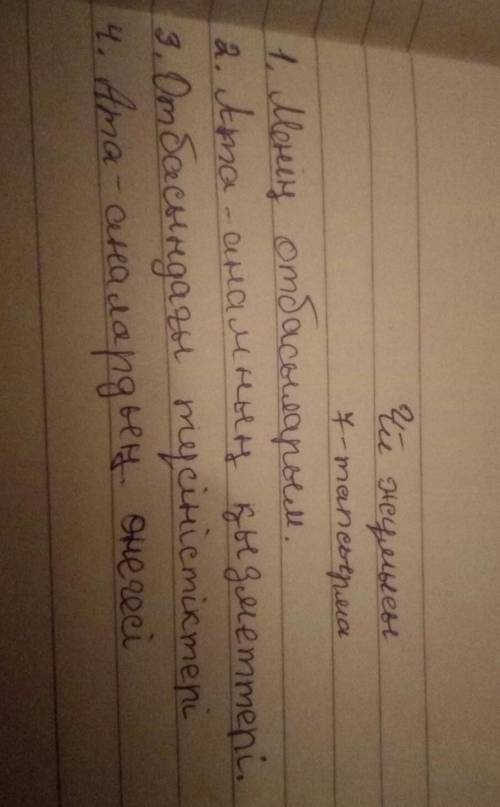 Үй жұмысы
7-тапсырма
1. Менің отбасыларым.
2. Ата-анамның қызметтері.
3. Отбасындағы түсіністіктері
4. Ата-аналардың өнегесі